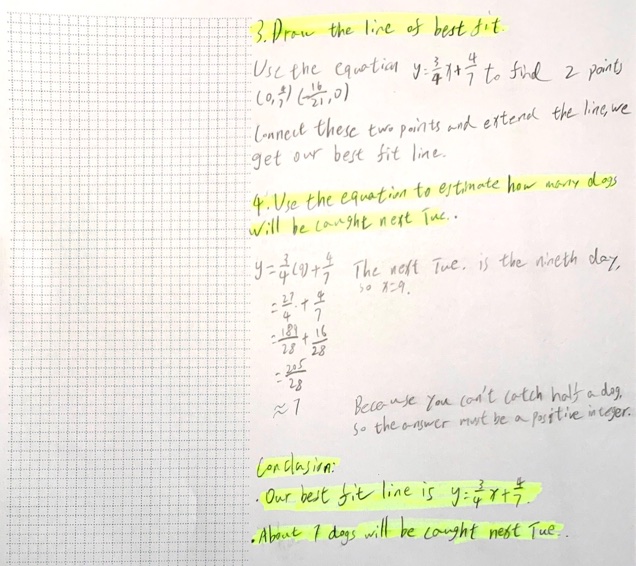 3. Draw the line of best fit.
Use the equation y=3/4x+4/7 to find 2 points
(0,4/7) (-16/21,0)
Connect these two points and extend the line, we
get our best fit line.
4. Use the equation to estimate how many dogs
will be caught next Tue..
y=3/4(9)+4/7 The next Tue. is the nineth day,
so x=9.
=27/4+4/7
=189/28+16/28
=205/28
≈7 Because you can't catch half a dog,
so the answer must be a positive integer.
Conclusion:
· Our best fit line is y=3/4x+4/7.
· About 7 dogs will be caught next Tue..